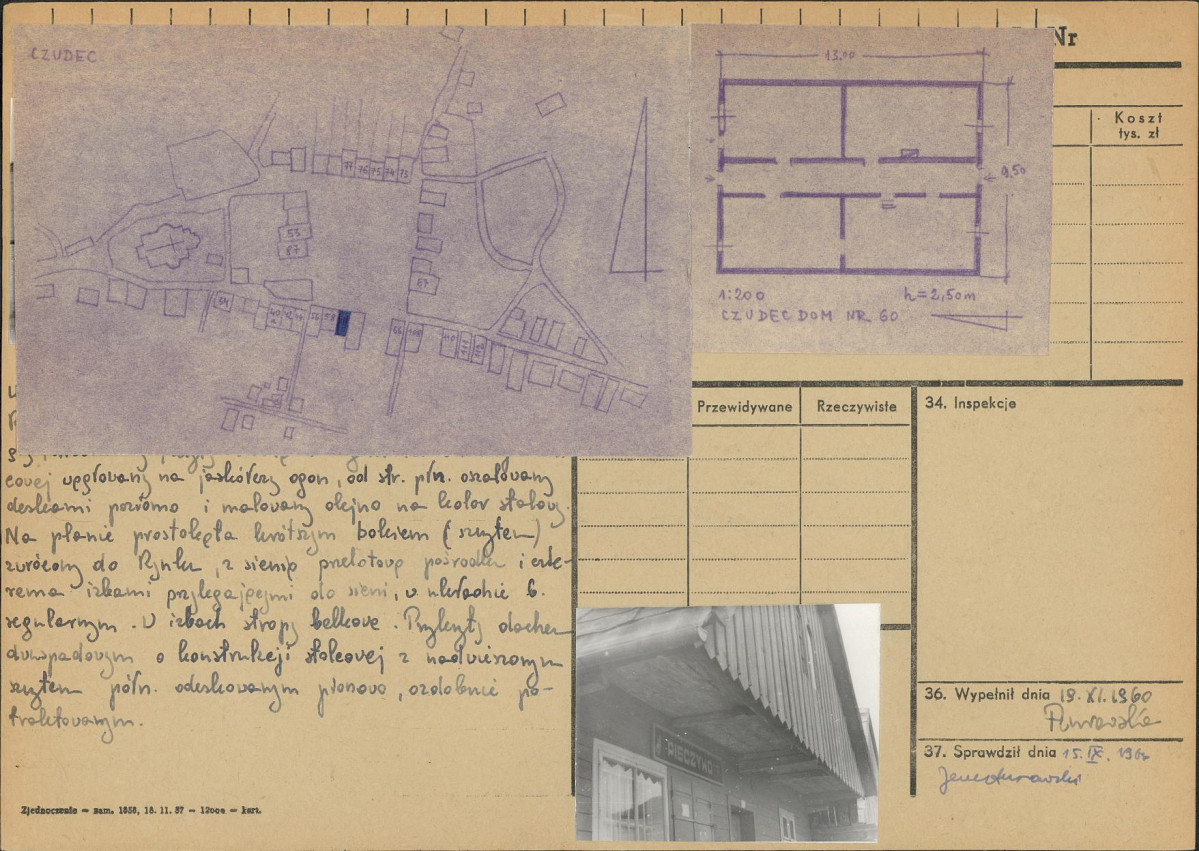 Nr
CZUDEC
13.00
9.50
1:200
h=2,50m
CZUDEC DOM NR 60
77 76 75 74 73
53
87
67
Koszt
tys. zł
Przewidywane
Rzeczywiste
34. Inspekcje
cowej węgłowany na jaskółczy ogon, od str. płn. oszalowany
deskami poziomo i malowany olejno na kolor stalowy.
Na planie prostokąta krótszym bokiem (szczytem)
zwrócony do Rynku, z sienią przelotową pośrodku i czte-
rema izbami przylegającymi do sieni, w układzie b.
regularnym. W izbach stropy belkowe. Przykryty dachem
dwuspadowym o konstrukcji stolcowej z nadwieszonym
szczytem półn. odeskowanym pionowo, ozdobnie po-
traktowanym.
PIECZYWO
36. Wypełnił dnia 19.XI.1960
37. Sprawdził dnia 15.IX.
Zjednoczenie — zam. 1858, 18. 11. 57 — 12000 — kart.